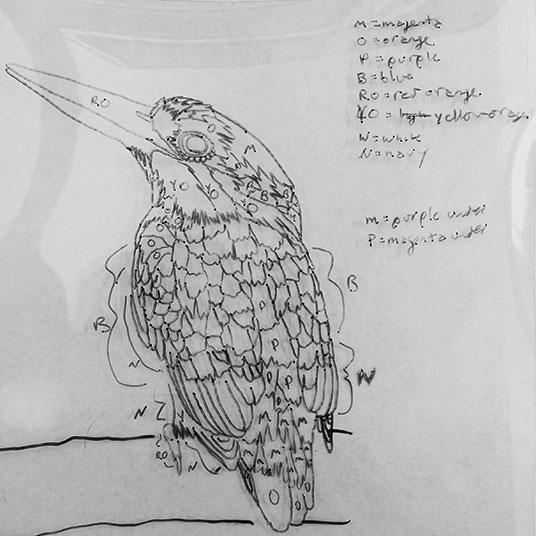 M = magenta
O = orange
P = purple
B = blue
RO = red orange
YO = yellow orange
W = white
N = navy
M = purple under
P = magenta under
RO
M
B
B
B
YO
YO
YO
O
O
B
B
N
W
N
P
P
P
P
M
M
M
M
RO
N
O
O
O